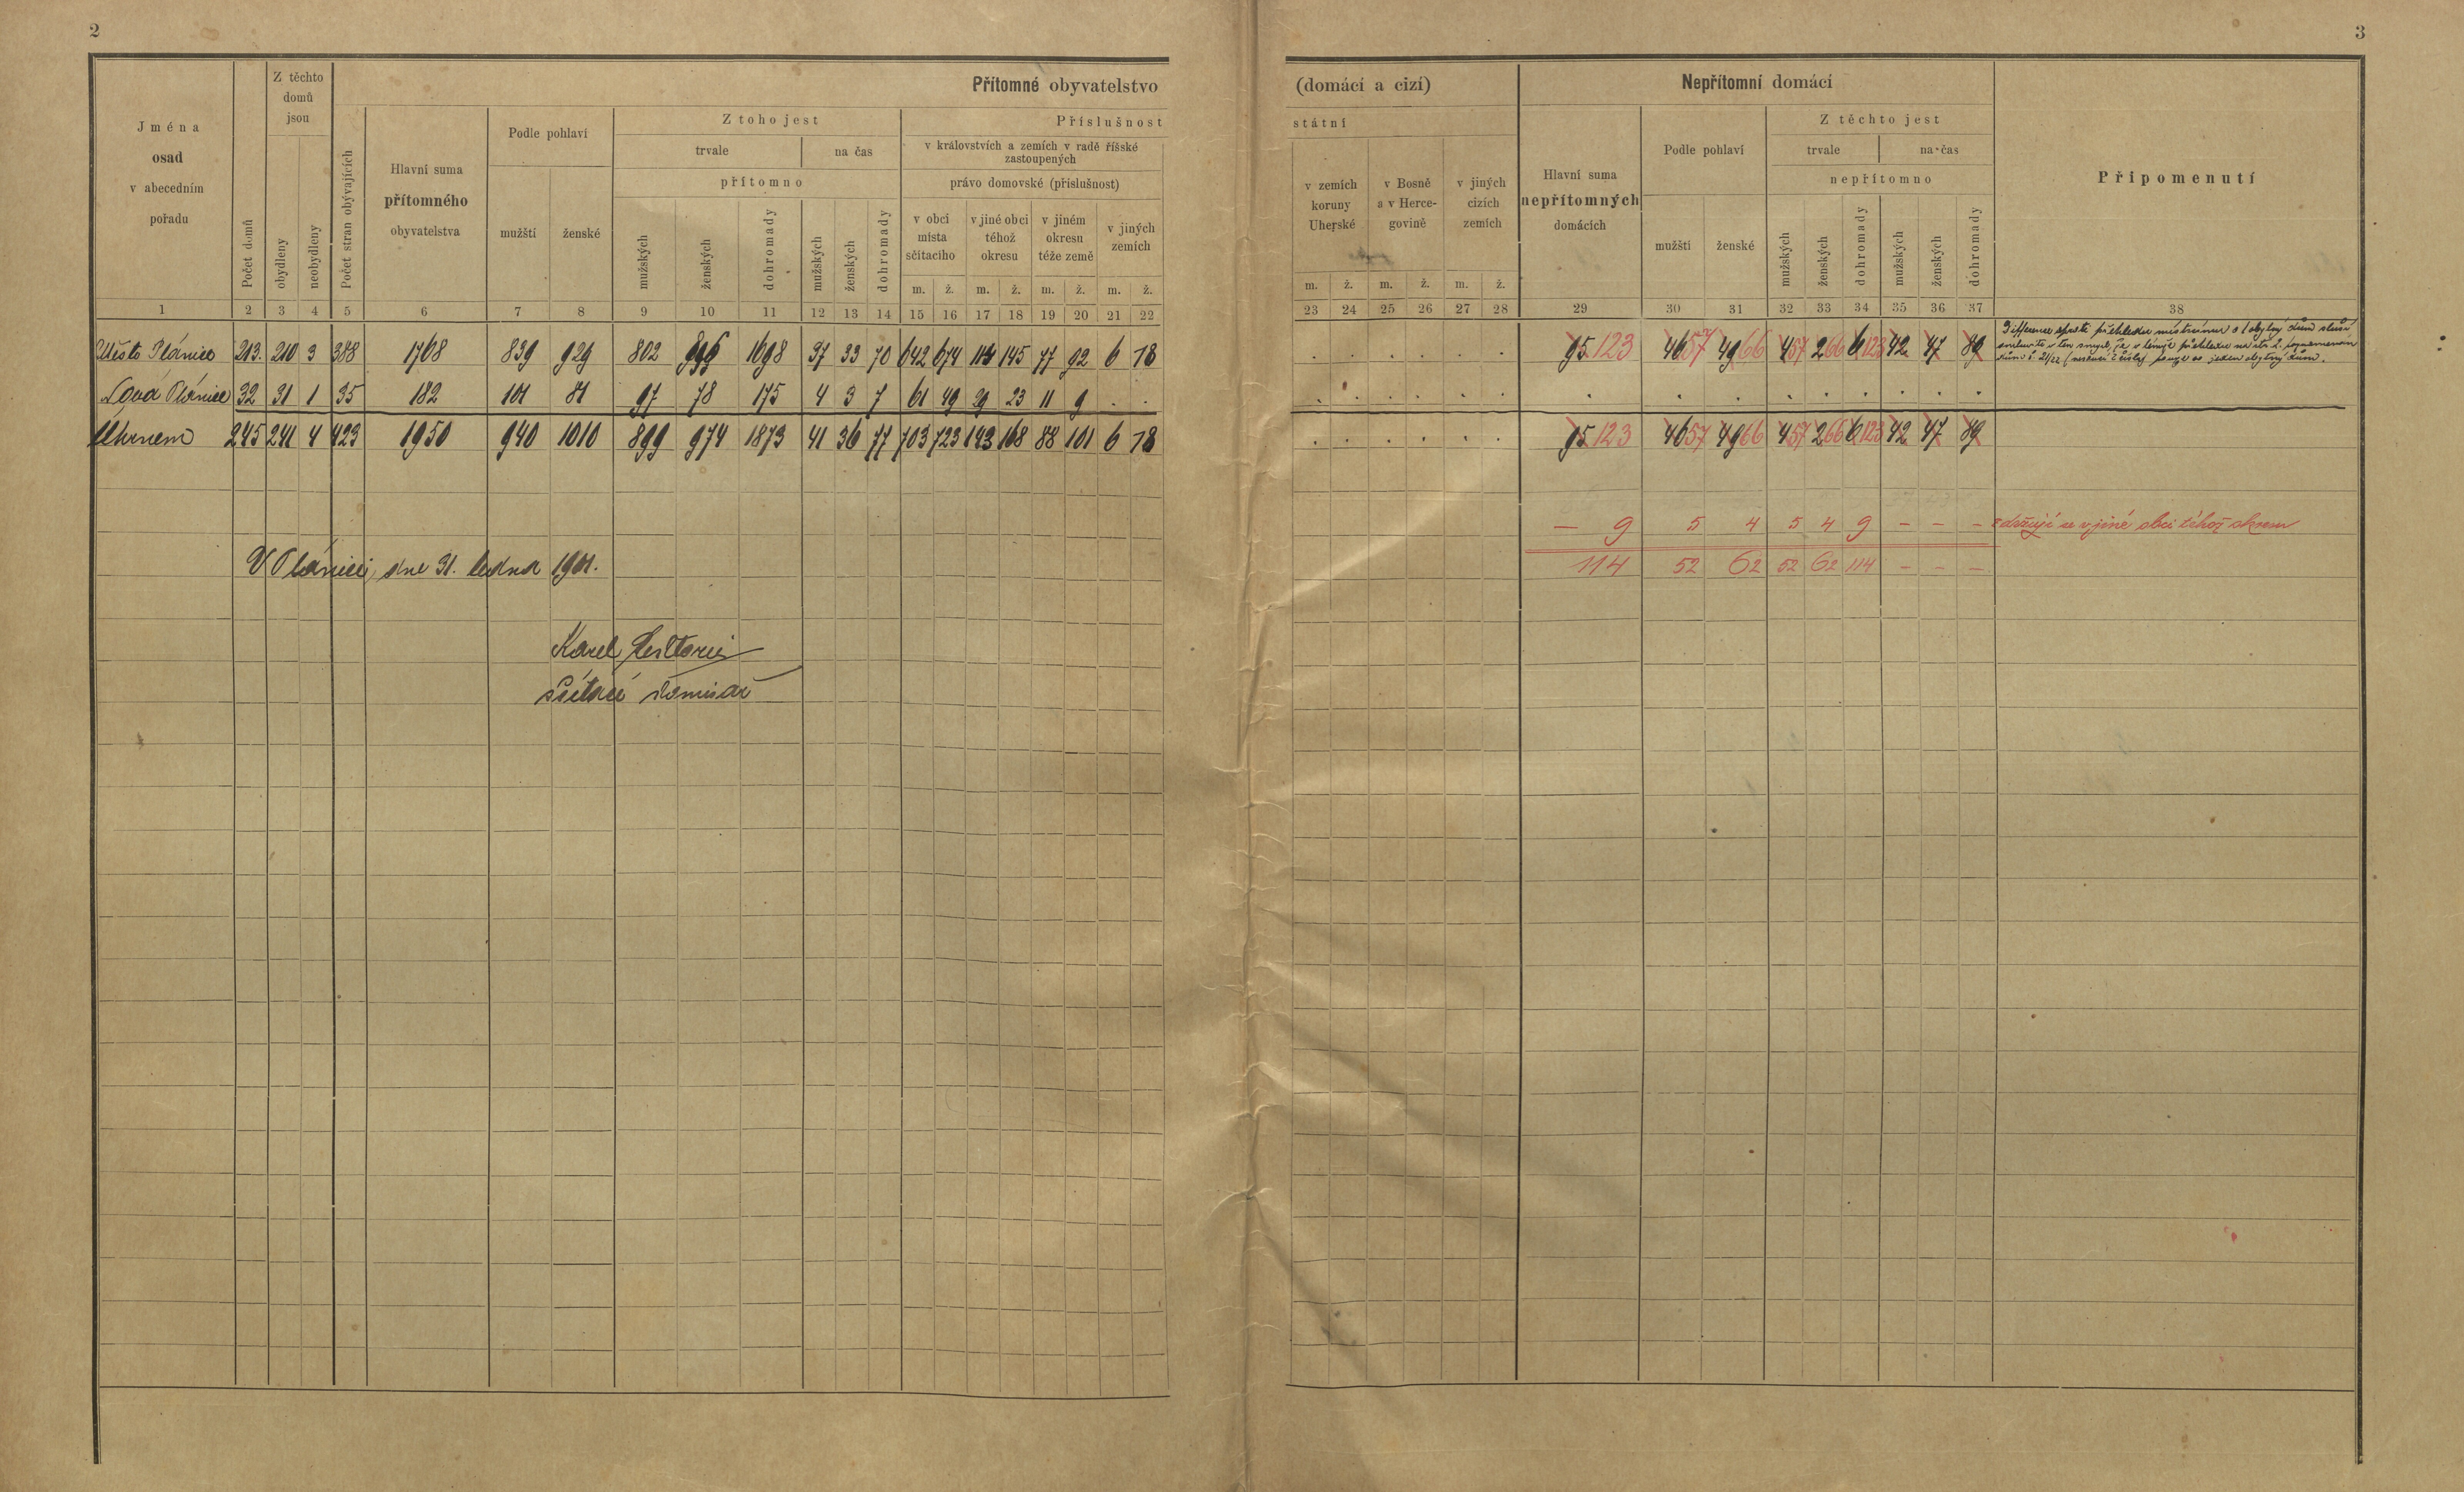 2
3
Přítomné obyvatelstvo
(domácí a cizí)
Nepřítomní domácí
Jména
osad
v abecedním
pořadu
Počet domů
Z těchto
domů
jsou
obydleny
neobydleny
Počet stran obývajících
Hlavní suma
přítomného
obyvatelstva
Podle pohlaví
mužští
ženské
Z toho jest
trvale
na čas
přítomno
mužských
ženských
dohromady
mužských
ženských
dohromady
Příslušnost
státní
v královstvích a zemích v radě říšské
zastoupených
právo domovské (příslušnost)
v obci
místa
sčítacího
v jiné obci
téhož
okresu
v jiném
okresu
téže země
v jiných
zemích
m. ž. m. ž. m. ž. m. ž.
v zemích
koruny
Uherské
v Bosně
a v Herce-
govině
v jiných
cizích
zemích
m. ž. m. ž. m. ž.
Hlavní suma
nepřítomných
domácích
Podle pohlaví
mužští
ženské
Z těchto jest
trvale
na čas
nepřítomno
mužských
ženských
dohromady
mužských
ženských
dohromady
Připomenutí
1 2 3 4 5 6 7 8 9 10 11 12 13 14 15 16 17 18 19 20 21 22
23 24 25 26 27 28 29 30 31 32 33 34 35 36 37 38
Město Plánice 213. 210 3 388 1768 839 929 802 896 1698 37 33 70 642 674 114 145 77 92 6 18
. . . . . . 95 123 46 57 49 66 4 57 2 66 6 123 42 47 89
Nová Plánice 32 31 1 35 182 101 81 97 78 175 4 3 7 61 49 29 23 11 9 . .
. . . . . . . . . . . . . . .
Úhrnem 245 241 4 423 1950 940 1010 899 974 1873 41 36 77 703 723 143 168 88 101 6 18
. . . . . . 95 123 46 57 49 66 4 57 2 66 6 123 42 47 89
— 9 5 4 5 4 9 – – – zdržují se v jiné obci téhož okresu
114 52 62 52 62 114 – – –
V Plánici, dne 31. ledna 1901.
Karel
sčítací komisař